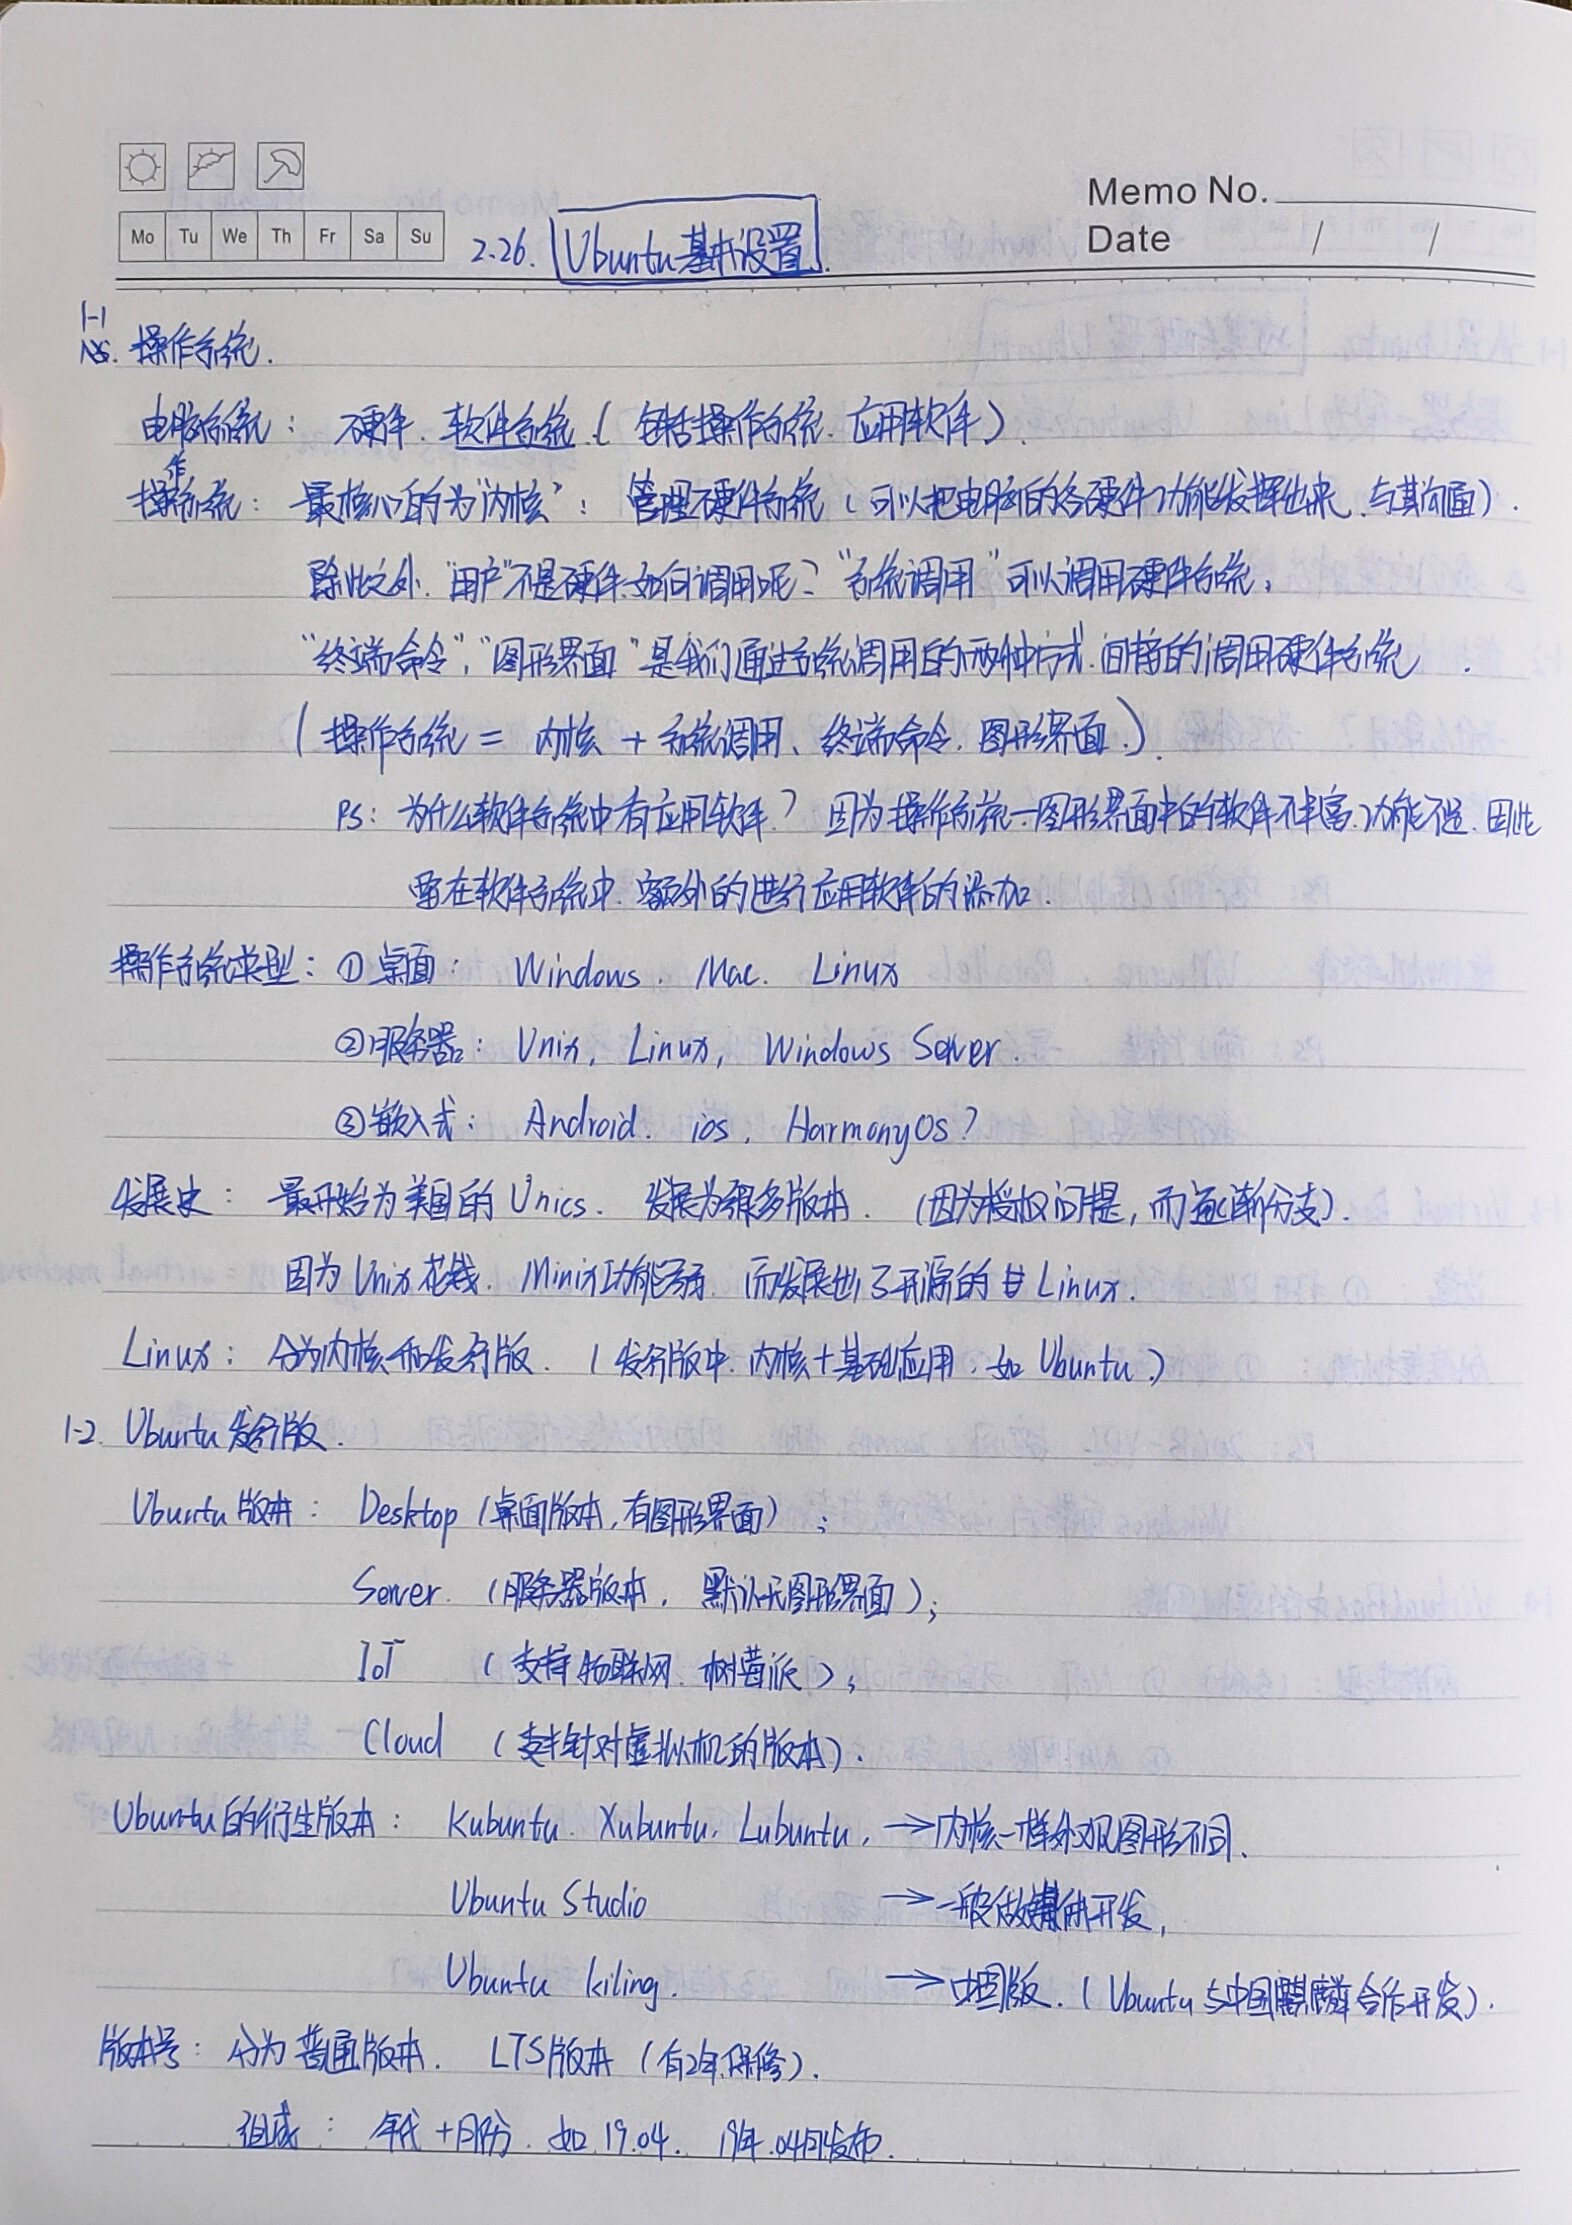 Memo No.
Mo Tu We Th Fr Sa Su
Date / /
2.26. Ubuntu基本设置.
1-1
操作系统.
电脑系统: 硬件、软件系统(包括操作系统、应用软件).
操作系统: 最核心的为"内核": 管理硬件系统(可以把电脑的各硬件功能发挥出来、与其沟通).
除此之外、"用户"不是硬件、如何调用呢? "系统调用"可以调用硬件系统,
"终端命令","图形界面"是我们通过系统调用的两种方式、间接的调用硬件系统.
(操作系统 = 内核 + 系统调用、终端命令、图形界面.).
PS: 为什么软件系统中有应用软件? 因为操作系统—图形界面中的软件不丰富、功能不足、因此
要在软件系统中、额外的进行应用软件的添加.
操作系统类型: ①桌面: Windows、Mac、Linux
②服务器: Unix, Linux, Windows Server.
③嵌入式: Android、ios、HarmonyOs?
发展史: 最开始为美国的Unics、发展为很多版本. (因为授权问提,而逐渐分支).
因为Unix花钱、Minix功能弱、而发展出了开源的 Linux.
Linux: 分为内核和发行版. (发行版中、内核+基础应用、如Ubuntu.)
1-2. Ubuntu发行版.
Ubuntu版本: Desktop (桌面版本,有图形界面);
Server. (服务器版本, 默认无图形界面);
IoT (支持物联网、树莓派);
Cloud (支持针对虚拟机的版本).
Ubuntu的衍生版本: Kubuntu、Xubuntu、Lubuntu, →内核一样外观图形不同、
Ubuntu Studio →一般做媒体开发,
Ubuntu kiling. →中国版. (Ubuntu与中国麒麟合作开发).
版本号: 分为普通版本、 LTS版本(有2年保修).
组成: 年代+月份、如19.04. 19年.04月发布.